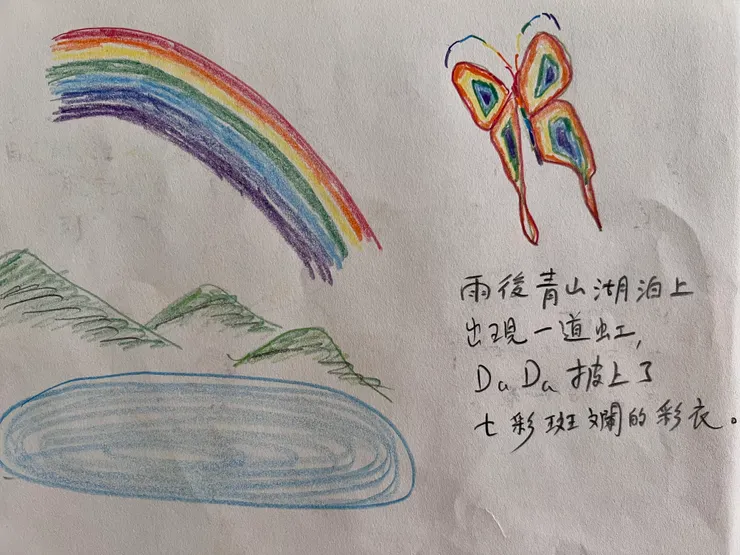 雨後青山湖泊上
出現一道虹,
DaDa披上了
七彩斑斕的彩衣。